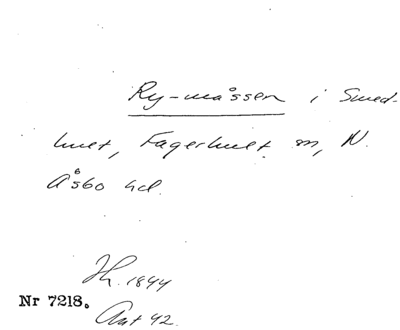 Ry-måssen i Smed-
hult, Fagerhult sn, N.
Åsbo hd.
Jh. 1844
Nr 7218.
Ant 42.